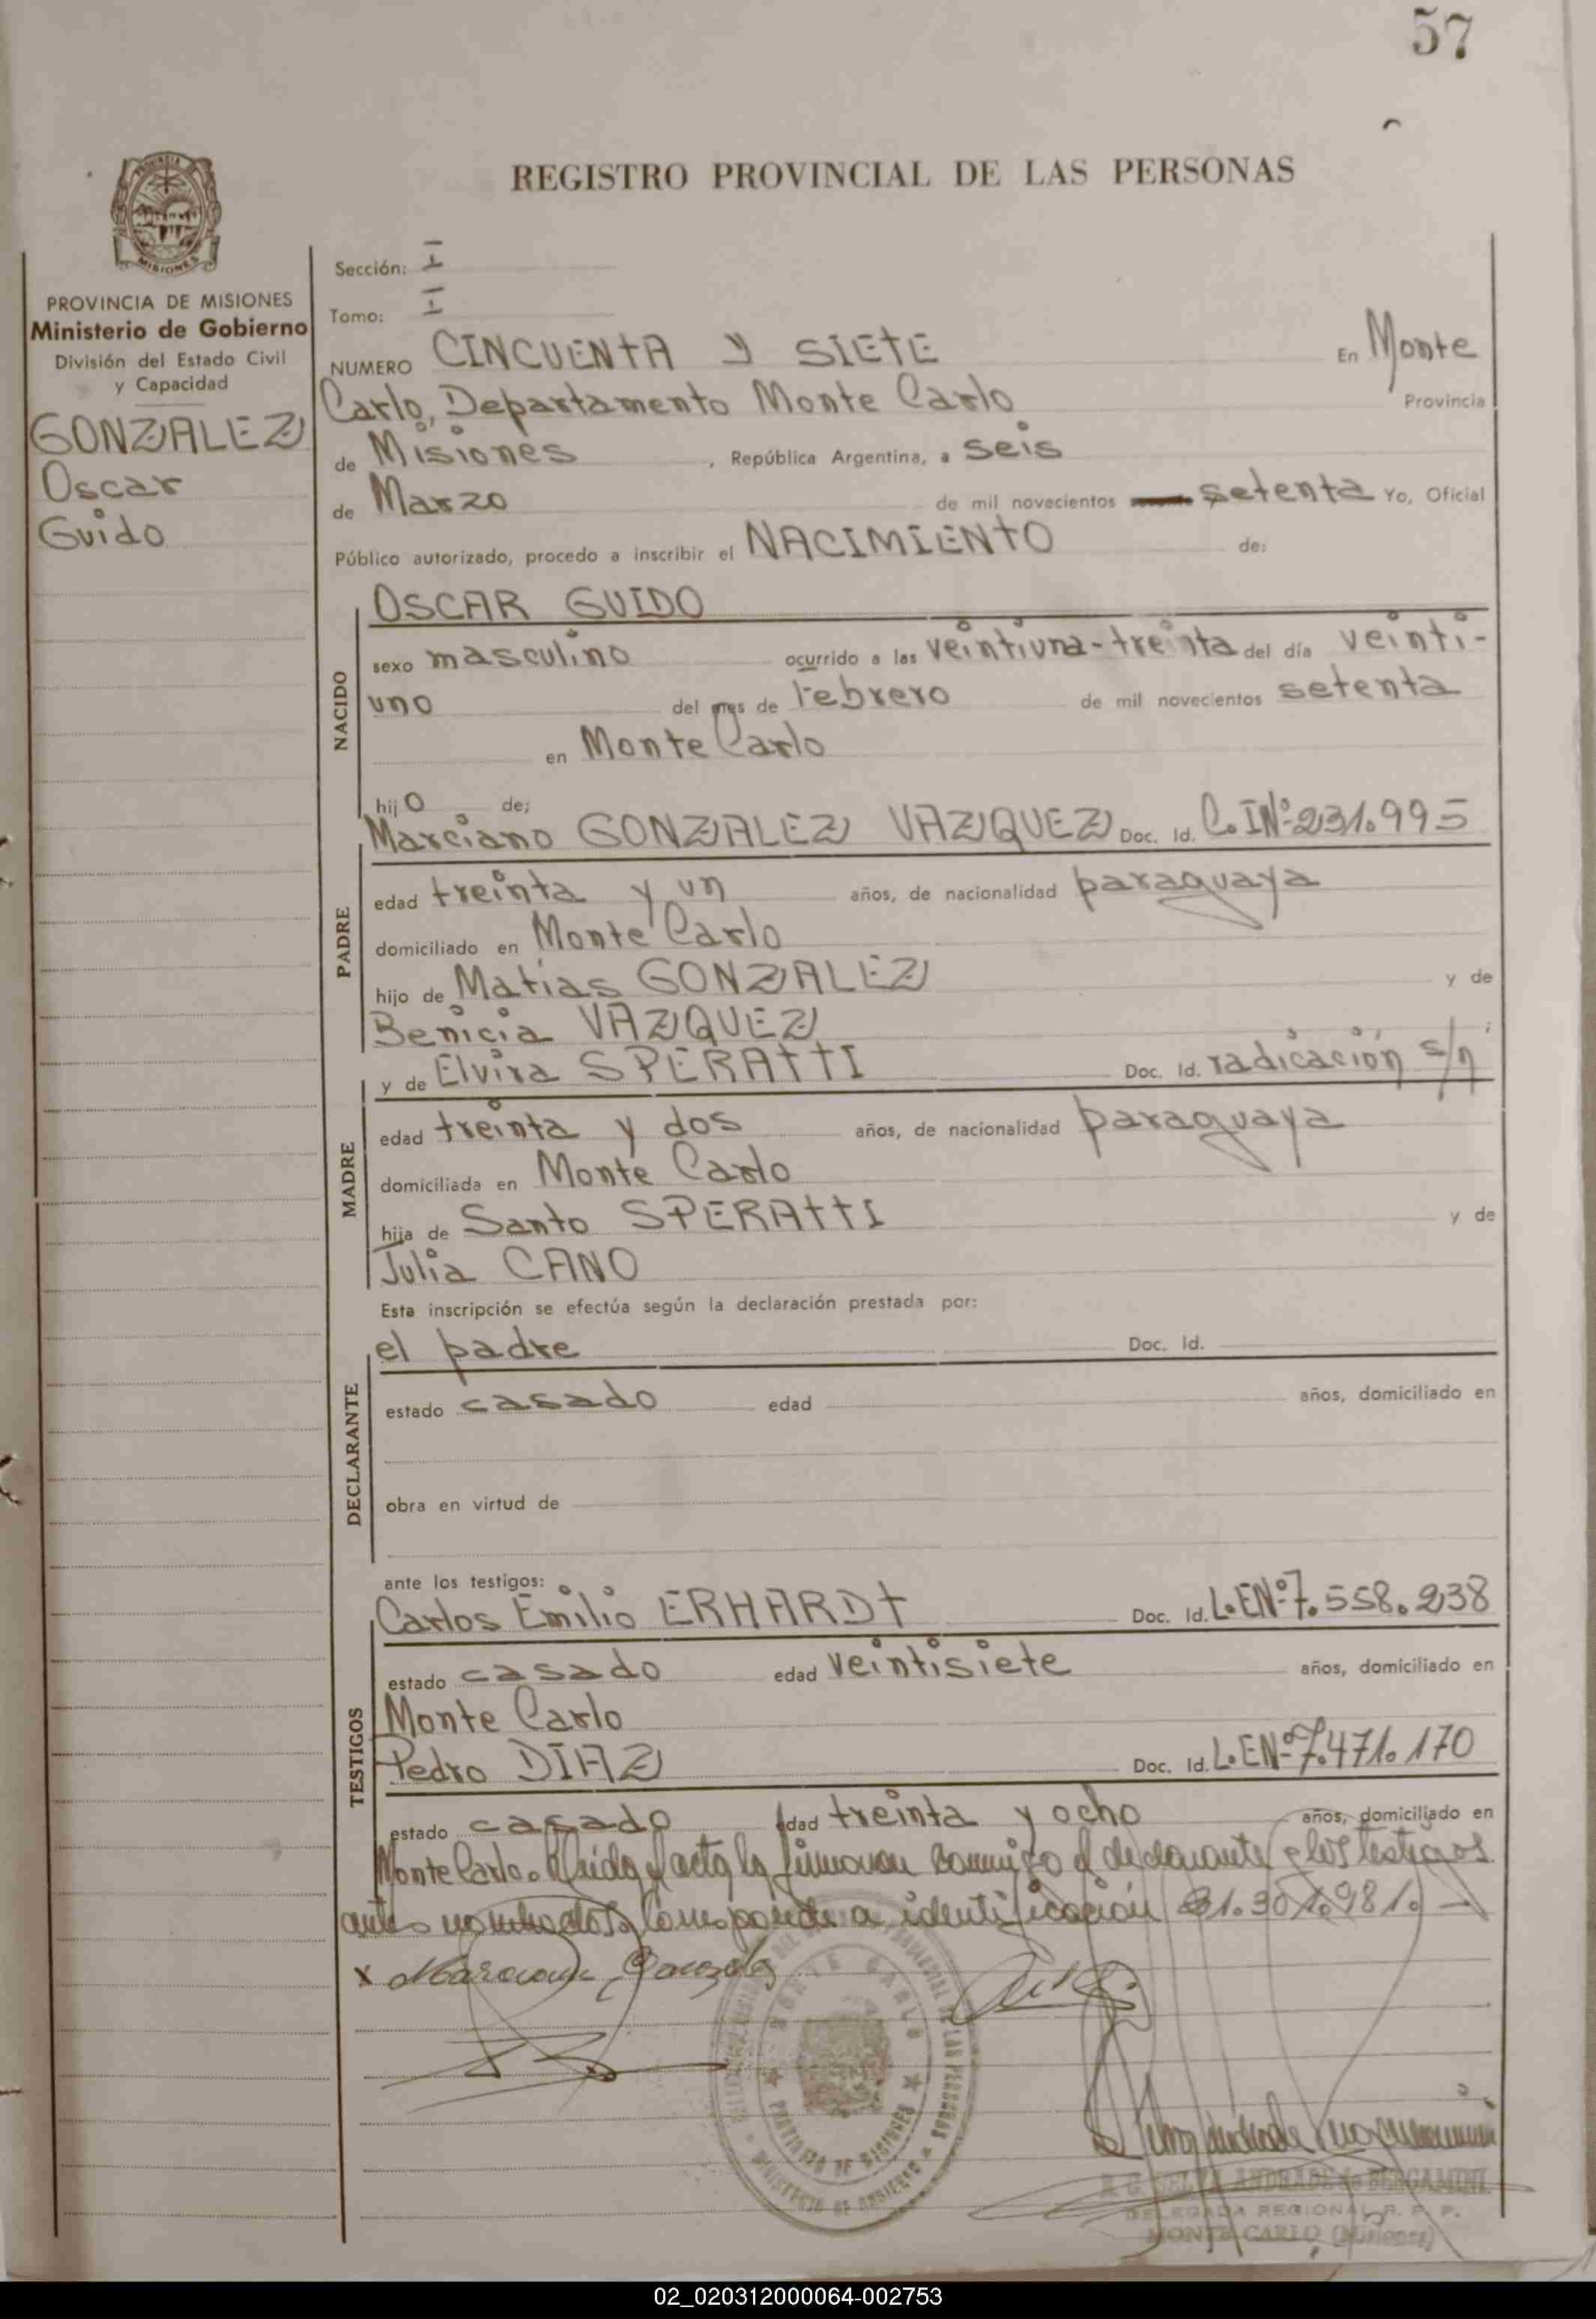 57
REGISTRO PROVINCIAL DE LAS PERSONAS
MISIONES
PROVINCIA DE MISIONES
Ministerio de Gobierno
División del Estado Civil
y Capacidad
GONZALEZ
Oscar
Guido
Sección: I
Tomo: I
NUMERO CINCUENTA Y SIETE En Monte
Carlo, Departamento Monte Carlo Provincia
de Misiones, República Argentina, a seis
de Marzo de mil novecientos setenta Yo, Oficial
Público autorizado, procedo a inscribir el NACIMIENTO de:
NACIDO
OSCAR GUIDO
sexo masculino ocurrido a las veintiuna-treinta del día veinti-
uno del mes de Febrero de mil novecientos setenta
en Monte Carlo
hijo de;
PADRE
Marciano GONZALEZ VAZQUEZ Doc. Id. C. I Nº 231.995
edad treinta y un años, de nacionalidad paraguaya
domiciliado en Monte Carlo
hijo de Matias GONZALEZ y de
Benicia VAZQUEZ ;
MADRE
y de Elvira SPERATTI Doc. Id. radicación s/n
edad treinta y dos años, de nacionalidad paraguaya
domiciliada en Monte Carlo
hija de Santo SPERATTI y de
Julia CANO
Esta inscripción se efectúa según la declaración prestada por:
DECLARANTE
el padre Doc. Id.
estado casado edad años, domiciliado en
obra en virtud de
ante los testigos:
TESTIGOS
Carlos Emilio ERHARDT Doc. Id. L.E Nº 7.558.238
estado casado edad veintisiete años, domiciliado en
Monte Carlo
Pedro DIAZ Doc. Id. L.E Nº 7.471.170
estado casado edad treinta y ocho años, domiciliado en
Monte Carlo. Leída el acta la firmaron conmigo el declarante y los testigos
antes nombrados. Corresponde a identificación 21.301.981.
x Marciano Gonzalez
MONTE CARLO
PROVINCIA DE MISIONES
MINISTERIO DE GOBIERNO
SELVA ANDRADE de BERGAMINI
DELEGADA REGIONAL R. P. P.
MONTE CARLO (Misiones)
02_020312000064-002753